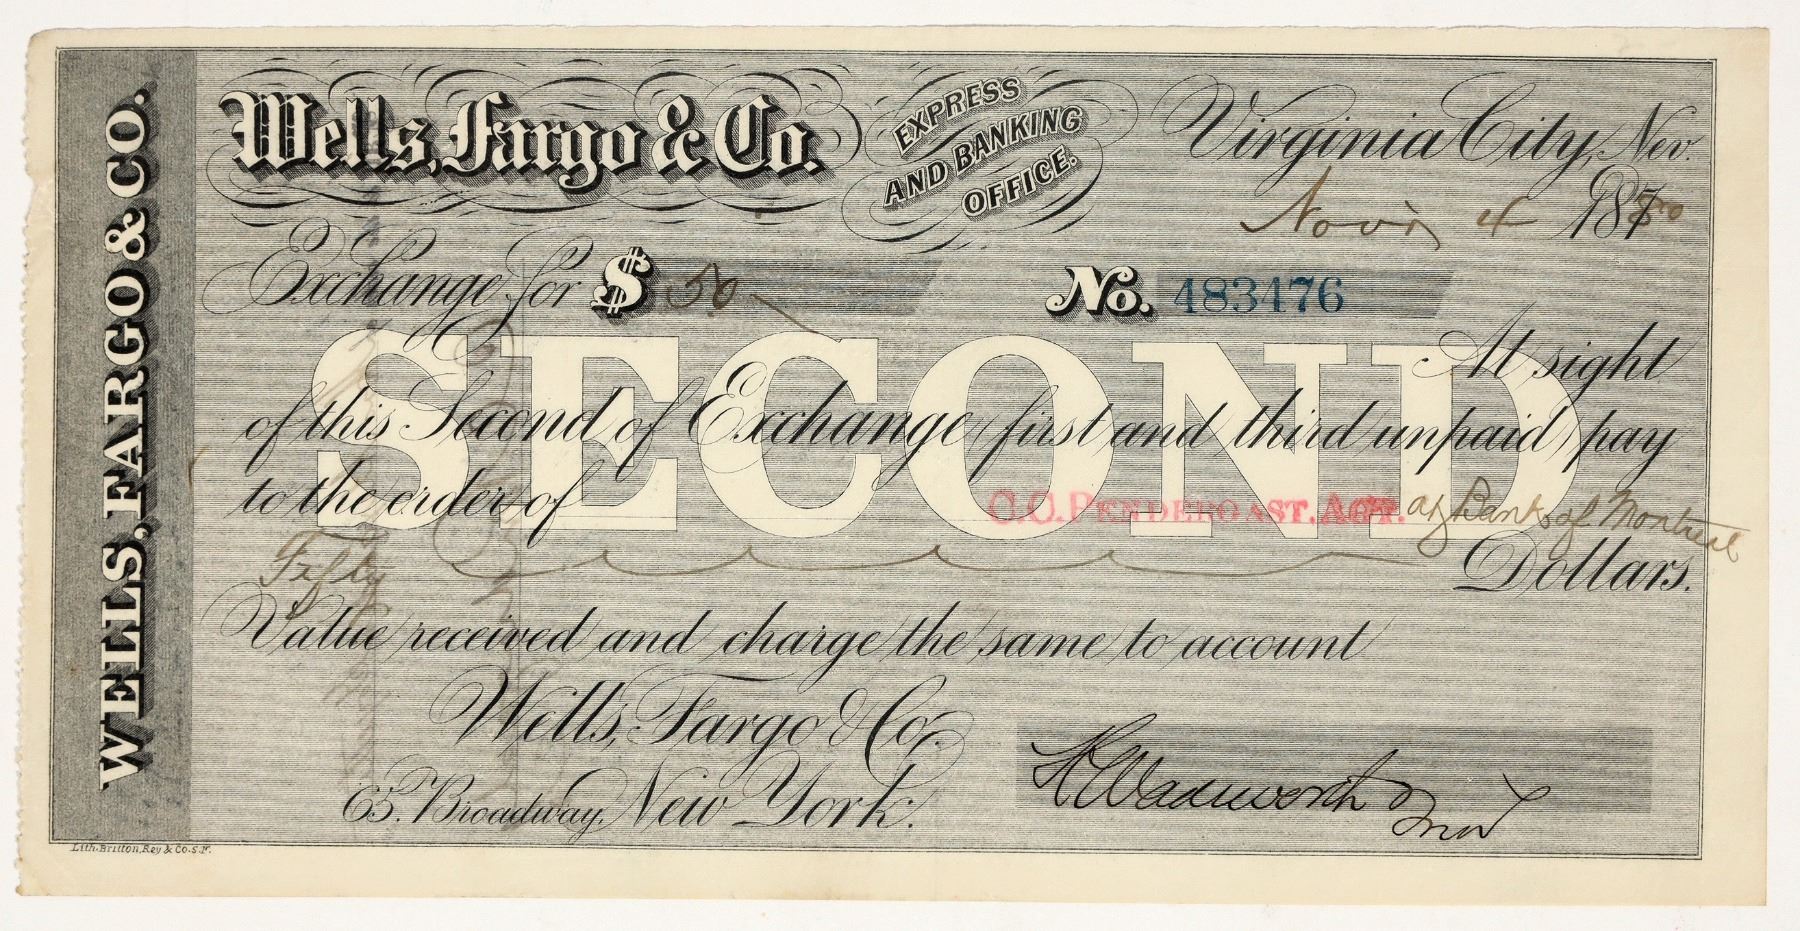 WELLS, FARGO & CO.
Wells, Fargo & Co.
EXPRESS
AND BANKING
OFFICE.
Virginia City, Nev.
Nov 4 1880
Exchange for $ 50
No. 483476
SECOND
At sight
of this Second of Exchange (first and third unpaid) pay
to the order of C.C. PENDERGAST. AGT. of Bank of Montreal
Fifty Dollars.
Value received and charge the same to account
Wells, Fargo & Co.
65. Broadway, New York.
Wadsworth
Lith. Britton, Rey & Co. S.F.